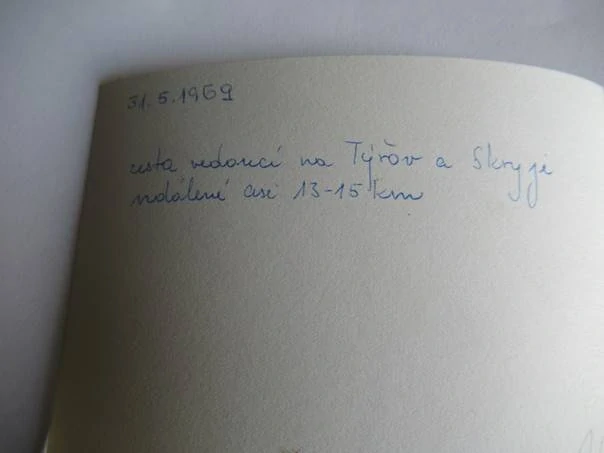 31.5.1969
cesta vedoucí na Týřov a Skryje
vzdálené asi 13-15 km